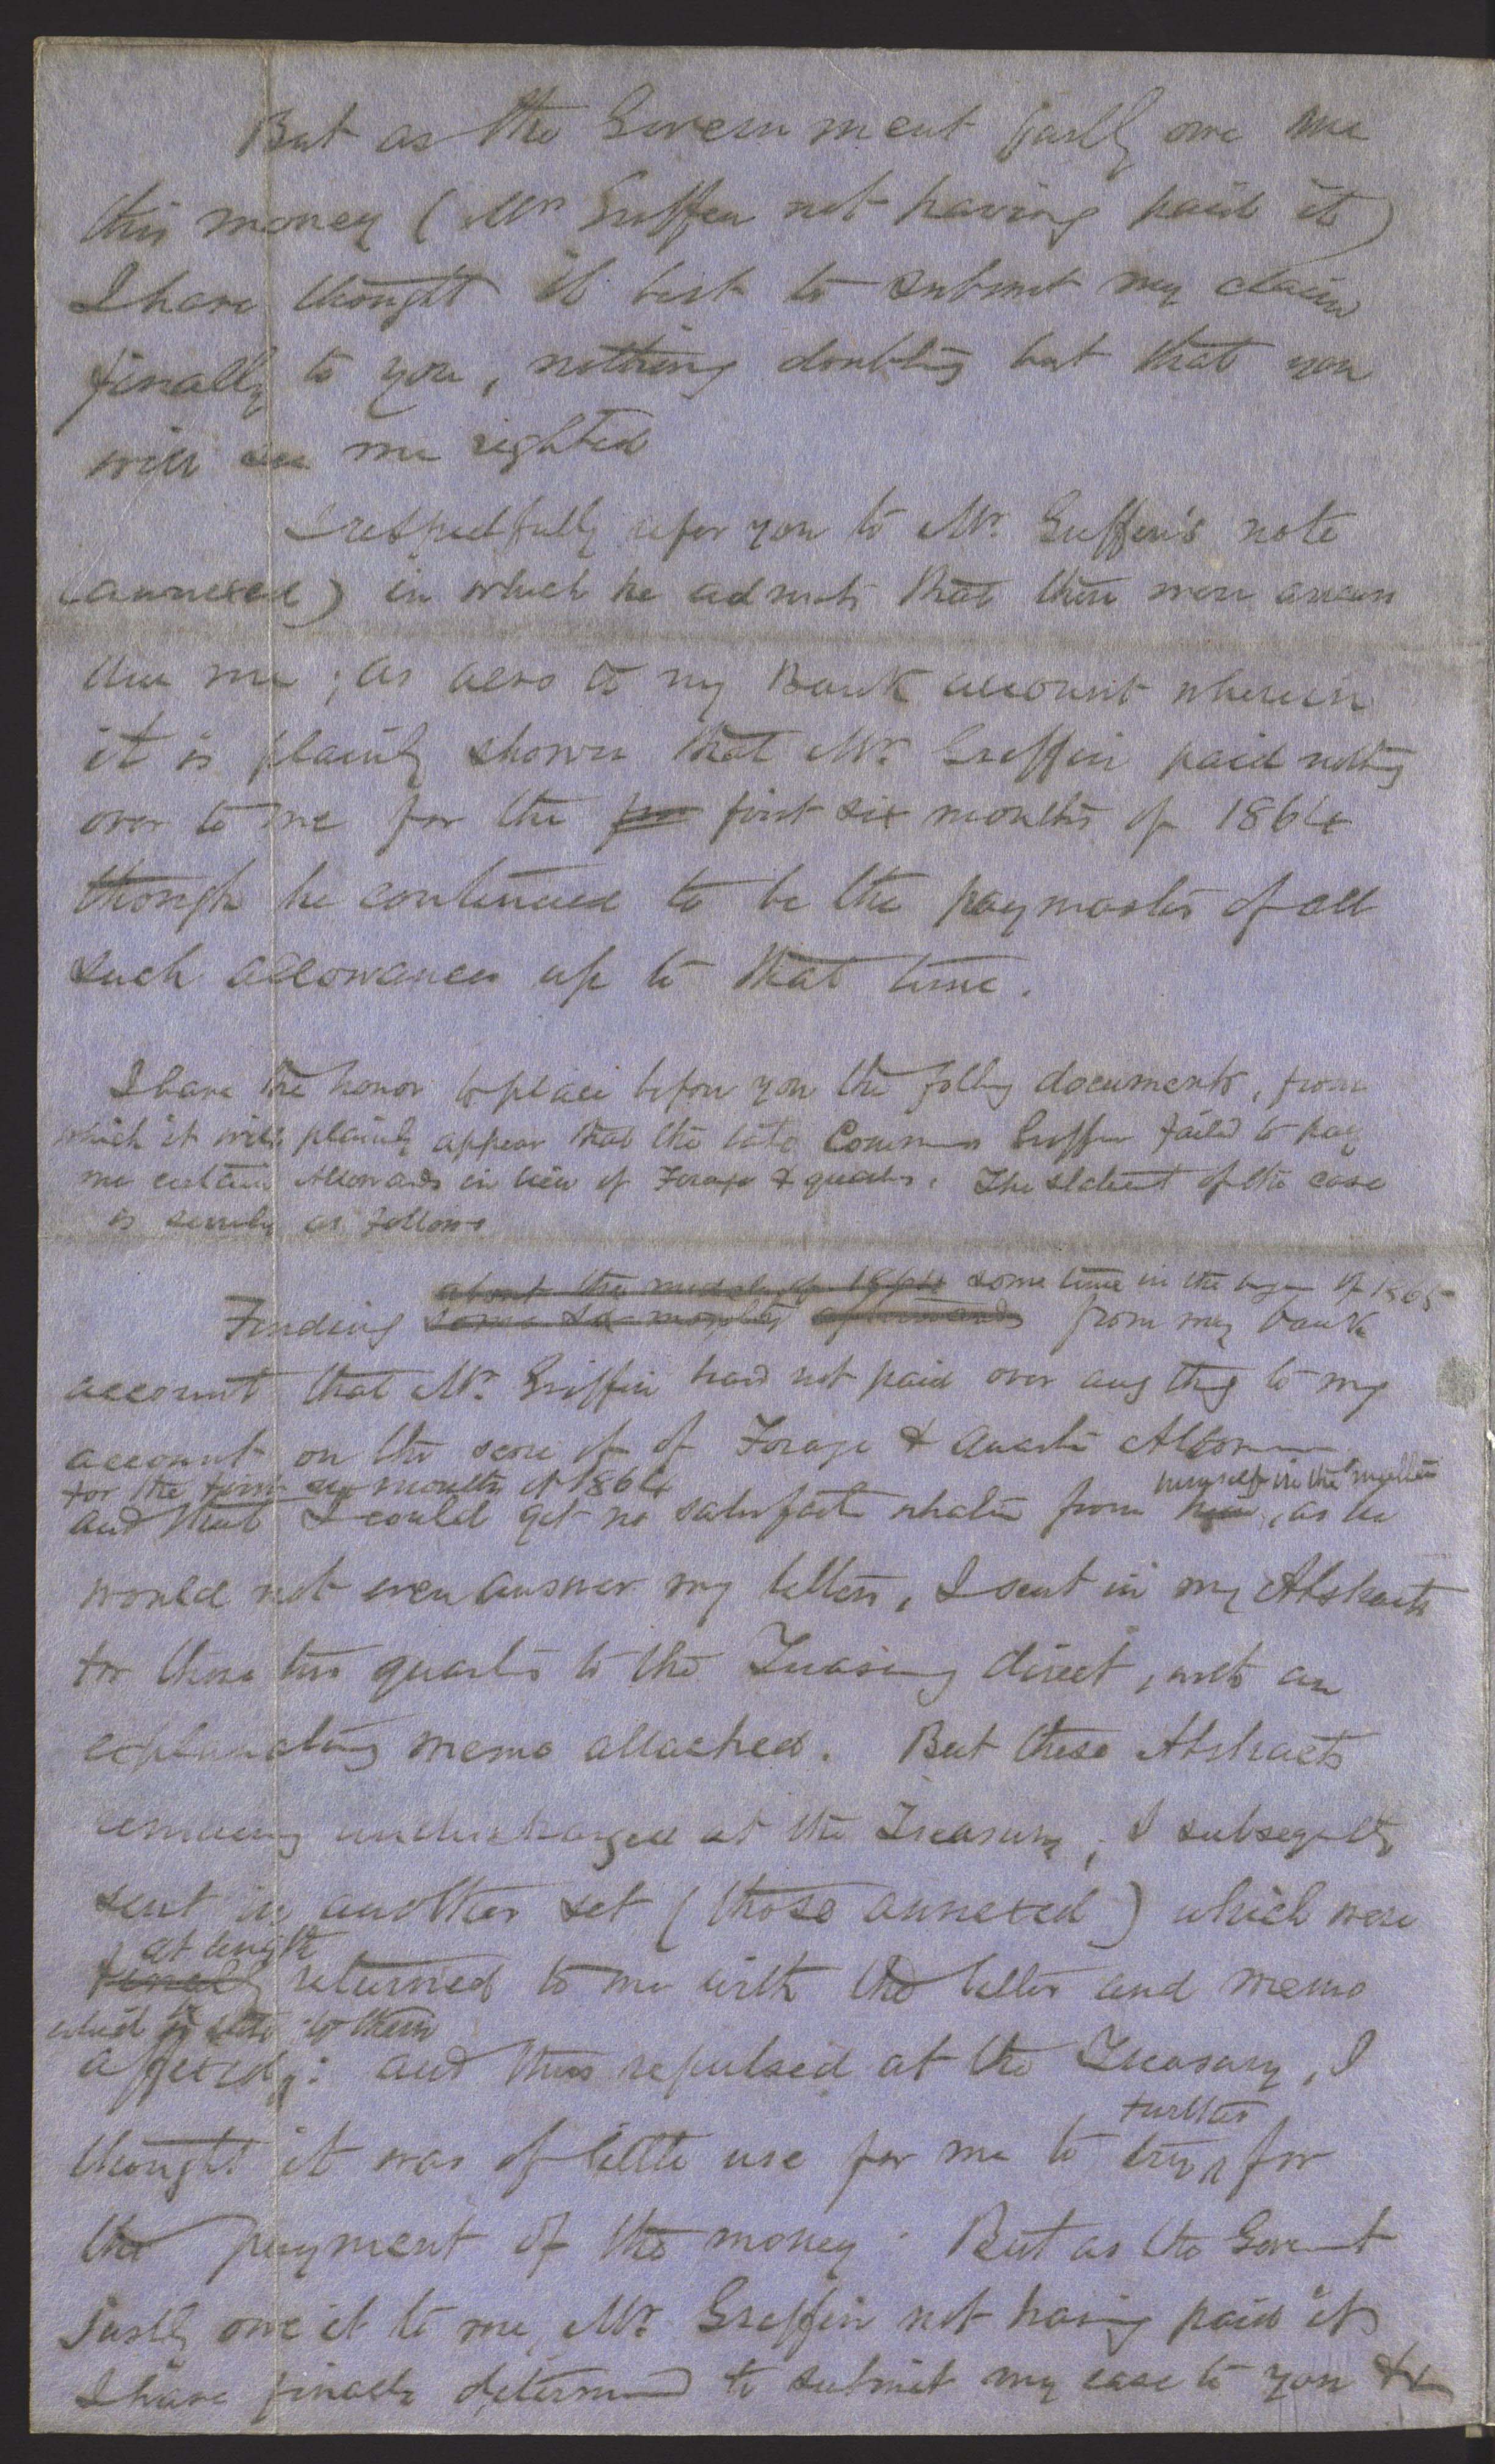 But as the Government justly owe me
this money (Mr Griffin not having paid it)
I have thought it best to submit my claim
finally to you, nothing doubting but that you
will see me righted
I respectfully refer you to Mr. Griffin's note
(annexed) in which he admits that there were arrears
due me; as also to my Bank account wherein
it is plainly shown that Mr. Griffin paid nothing
over to me for the first six months of 1864
though he continued to be the paymaster of all
such allowances up to that time.
I have the honor to place before you the follg documents, from
which it will plainly appear that the late Commr Griffin failed to pay
me certain Allowances in lieu of Forage & quarters. The statemt of the case
is simply as follows
about the middle of 1864 some time in the of 1865
Finding some six months afterwards from my bank
account that Mr. Griffin had not paid over any thg to my
account on the score of of Forage & Quarter Allow
for the first six months of 1864 himself in the matter
and that I could get no satisfact from him, as he
would not even answer my letters, I sent in my Abstracts
for these two quarters to the Treasury direct, with an
explanatory memo attached. But these Abstracts
remaing undischarged at the Treasury, I subseqtly
sent in another set (those annexed) which were
at length
finally returned to me with the letter and memo
which is to them
affixed: and thus repulsed at the Treasury, I
further
thought it was of little use for me to try for
the payment of the money. But as the Govermt
justly owe it to me, Mr. Griffin not having paid it
I have finally determined to submit my case to you &c